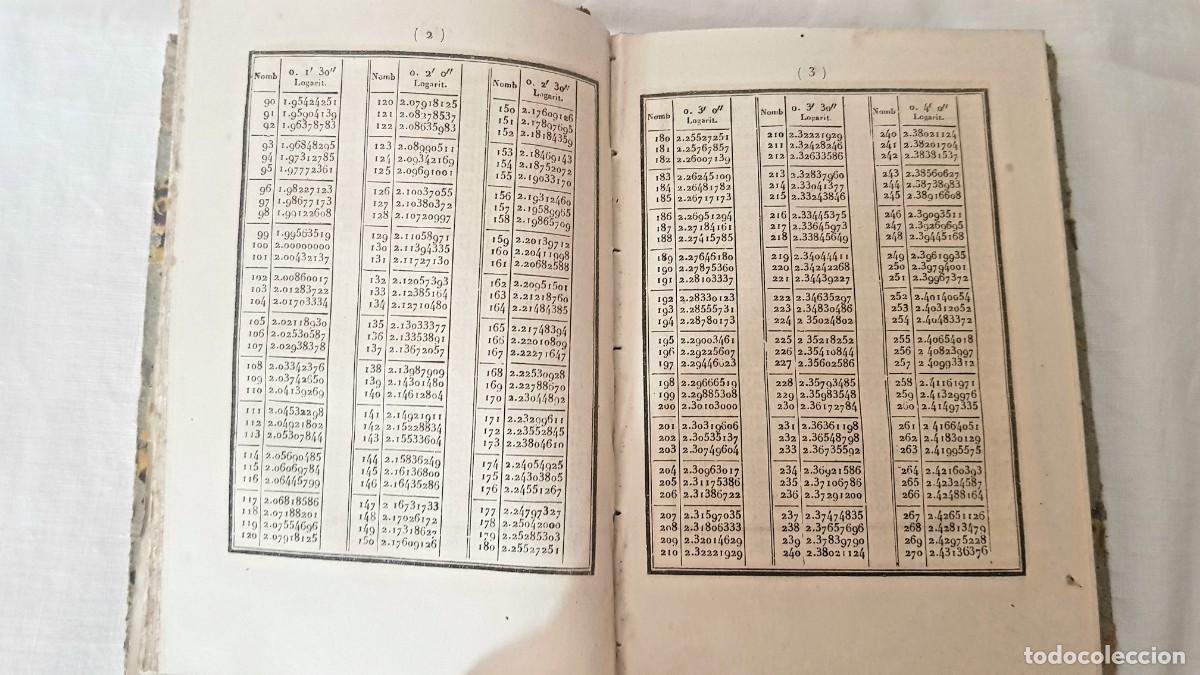 ( 2 )
Nomb 0. 1' 30" Logarit. Nomb 0. 2' 0" Logarit. Nomb 0. 2' 30" Logarit.
90 1.95424251 120 2.07918125 150 2.17609126
91 1.95904139 121 2.08278537 151 2.17897695
92 1.96378783 122 2.08635983 152 2.18184359
93 1.96848295 123 2.08990511 153 2.18469143
94 1.97312785 124 2.09342169 154 2.18752072
95 1.97772361 125 2.09691001 155 2.19033170
96 1.98227123 126 2.10037055 156 2.19312460
97 1.98677173 127 2.10380372 157 2.19589965
98 1.99122608 128 2.10720997 158 2.19865709
99 1.99563519 129 2.11058971 159 2.20139712
100 2.00000000 130 2.11394335 160 2.20411998
101 2.00432137 131 2.11727130 161 2.20682588
102 2.00860017 132 2.12057393 162 2.20951501
103 2.01283722 133 2.12385164 163 2.21218760
104 2.01703334 134 2.12710480 164 2.21484385
105 2.02118930 135 2.13033377 165 2.21748394
106 2.02530587 136 2.13353891 166 2.22010809
107 2.02938378 137 2.13672057 167 2.22271647
108 2.03342376 138 2.13987909 168 2.22530928
109 2.03742650 139 2.14301480 169 2.22788670
110 2.04139269 140 2.14612804 170 2.23044892
111 2.04532298 141 2.14921911 171 2.23299611
112 2.04921802 142 2.15228834 172 2.23552845
113 2.05307844 143 2.15533604 173 2.23804610
114 2.05690485 144 2.15836249 174 2.24054925
115 2.06069784 145 2.16136800 175 2.24303805
116 2.06445799 146 2.16435286 176 2.24551267
117 2.06818586 147 2 16731733 177 2.24797327
118 2.07188201 148 2.17026172 178 2.25042000
119 2.07554696 149 2.17318627 179 2.25285303
120 2.07918125 150 2.17609126 180 2.25527251
( 3 )
Nomb 0. 3' 0" Logarit. Nomb 0. 3' 30" Logarit. Nomb 0. 4' 0" Logarit.
180 2.25527251 210 2.32221929 240 2.38021124
181 2.25767857 211 2.32428246 241 2.38201704
182 2.26007139 212 2.32633586 242 2.38381537
183 2.26245109 213 2.32837960 243 2.38560627
184 2.26481782 214 2.33041377 244 2.38738983
185 2.26717173 215 2.33243846 245 2.38916608
186 2.26951294 216 2.33445375 246 2.39093511
187 2.27184161 217 2.33645973 247 2.39269695
188 2.27415785 218 2.33845649 248 2.39445168
189 2.27646180 219 2.34044411 249 2.39619935
190 2.27875360 220 2.34242268 250 2.39794001
191 2.28103337 221 2.34439227 251 2.39967372
192 2.28330123 222 2.34635297 252 2.40140054
193 2.28555731 223 2.34830486 253 2.40312052
194 2.28780173 224 2.35024802 254 2.40483372
195 2.29003461 225 2.35218252 255 2.40654018
196 2.29225607 226 2.35410844 256 2 40823997
197 2.29446623 227 2.35602586 257 2.40993312
198 2.29666519 228 2.35793485 258 2.41161971
199 2.29885308 229 2.35983548 259 2.41329976
200 2.30103000 230 2.36172784 260 2.41497335
201 2.30319606 231 2.36361198 261 2.41664051
202 2.30535137 232 2.36548798 262 2.41830129
203 2.30749604 233 2.36735592 263 2.41995575
204 2.30963017 234 2.36921586 264 2.42160393
205 2.31175386 235 2.37106786 265 2.42324587
206 2.31386722 236 2.37291200 266 2.42488164
207 2.31597035 237 2.37474835 267 2.42651126
208 2.31806333 238 2.37657696 268 2.42813479
209 2.32014629 239 2.37839790 269 2.42975228
210 2.32221929 240 2.38021124 270 2.43136376
todocoleccion